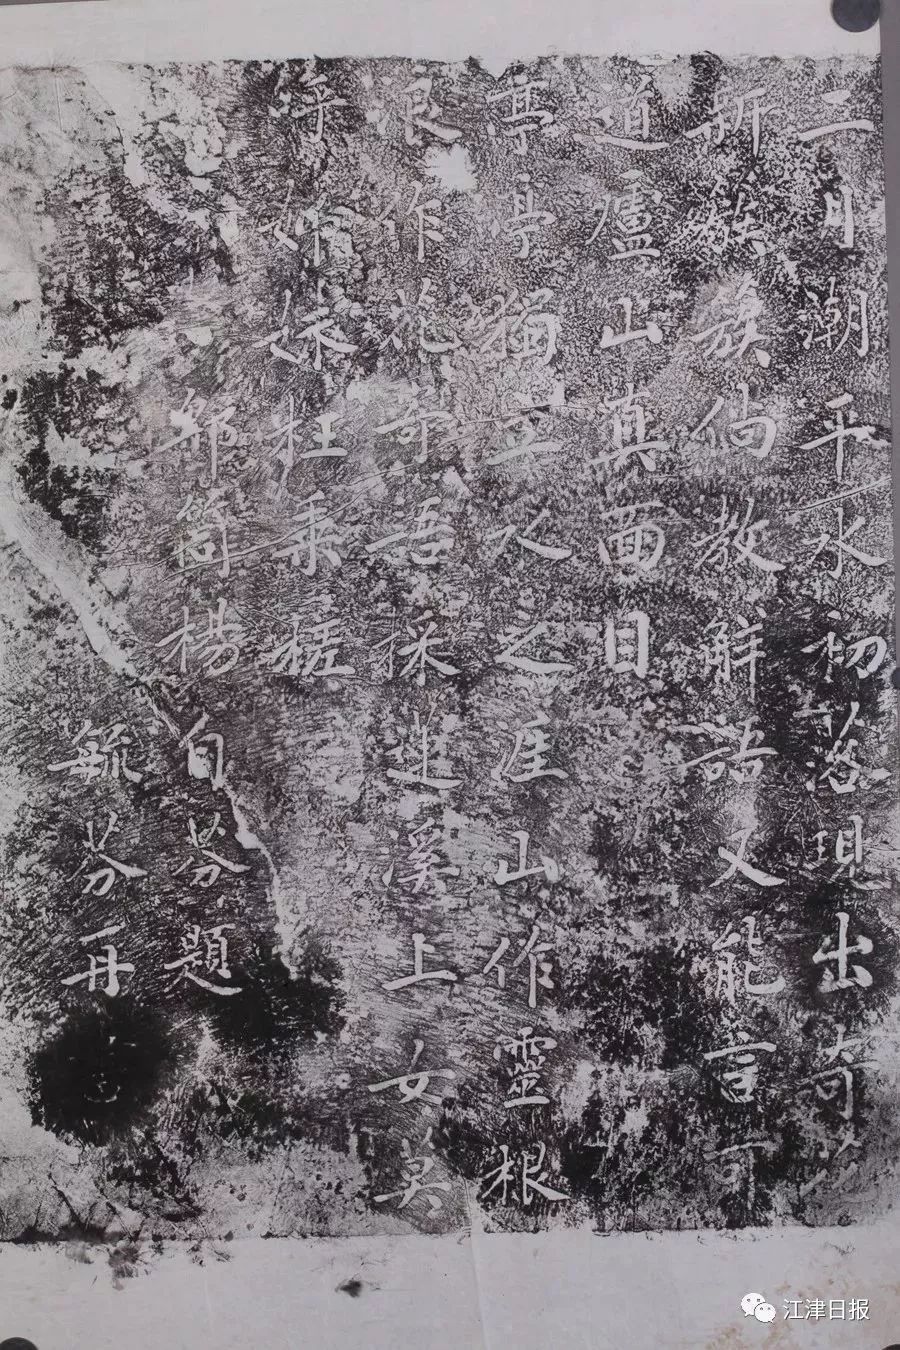 二月潮平水初落現出奇
新簇簇倘教解語又能言可
道廬山真面目
亭亭獨立水之涯山作靈根
浪作花寄語採蓮溪上女莫
呼姊妹枉乘槎
楊芬題
毓芬再
江津日报